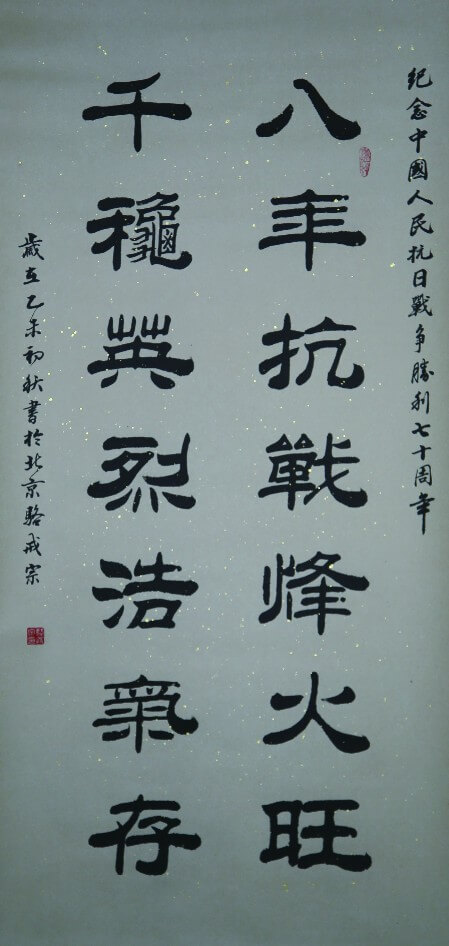 紀念中國人民抗日戰爭勝利七十周年
八年抗戰烽火旺
千龝英烈浩氣存
歲在乙未初秋書於北京駱成宗